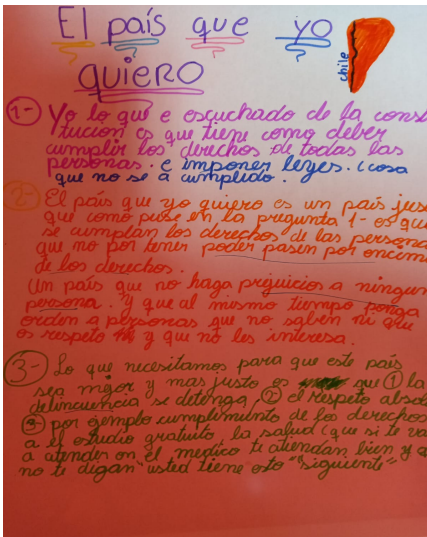 El país que yo
quiero
chile
1- Yo lo que e escuchado de la const
tucion es que tiene como deber
cumplir los derechos de todas las
personas. e imponer leyes. (cosa
que no se a cumplido.
2- El país que yo quiero es un país jus
que como puse en la pregunta 1- es que
se cumplan los derechos de las persona
que no por tener poder pasen por encim
de los derechos.
Un país que no haga prejuicios a ningun
persona. y que al mismo tiempo ponga
orden a personas que no saben ni que
es respeto y que no les interesa.
3- Lo que necesitamos para que este país
sea mejor y mas justo es que ① la
delincuencia se detenga, ② el respeto absol
③ por ejemplo cumplimiento de los derechos
a el estudio gratuito, la salud (que si te va
a atender en el medico te atiendan bien y
no te digan "usted tiene esto" "siguiente"